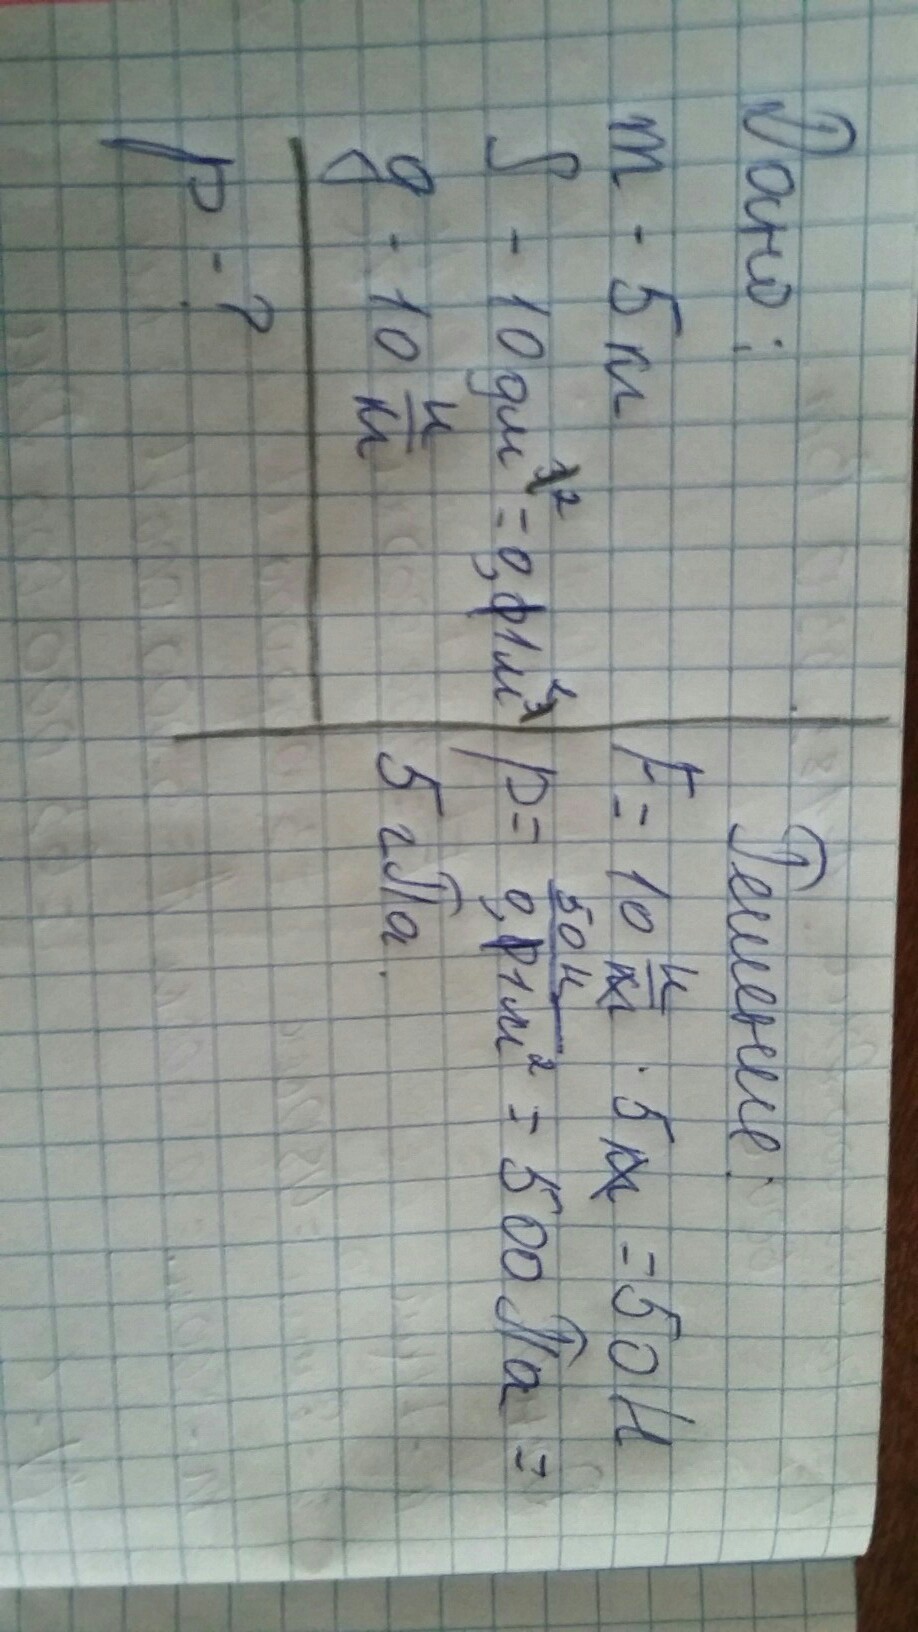 Дано:
m - 5 кг
S - 10 дм² = 0,1 м²
g - 10 н/кг
p - ?
Решение:
F = 10 н/кг · 5 кг = 50 Н
p = 50 н/0,1 м² = 500 Па =
5 гПа.